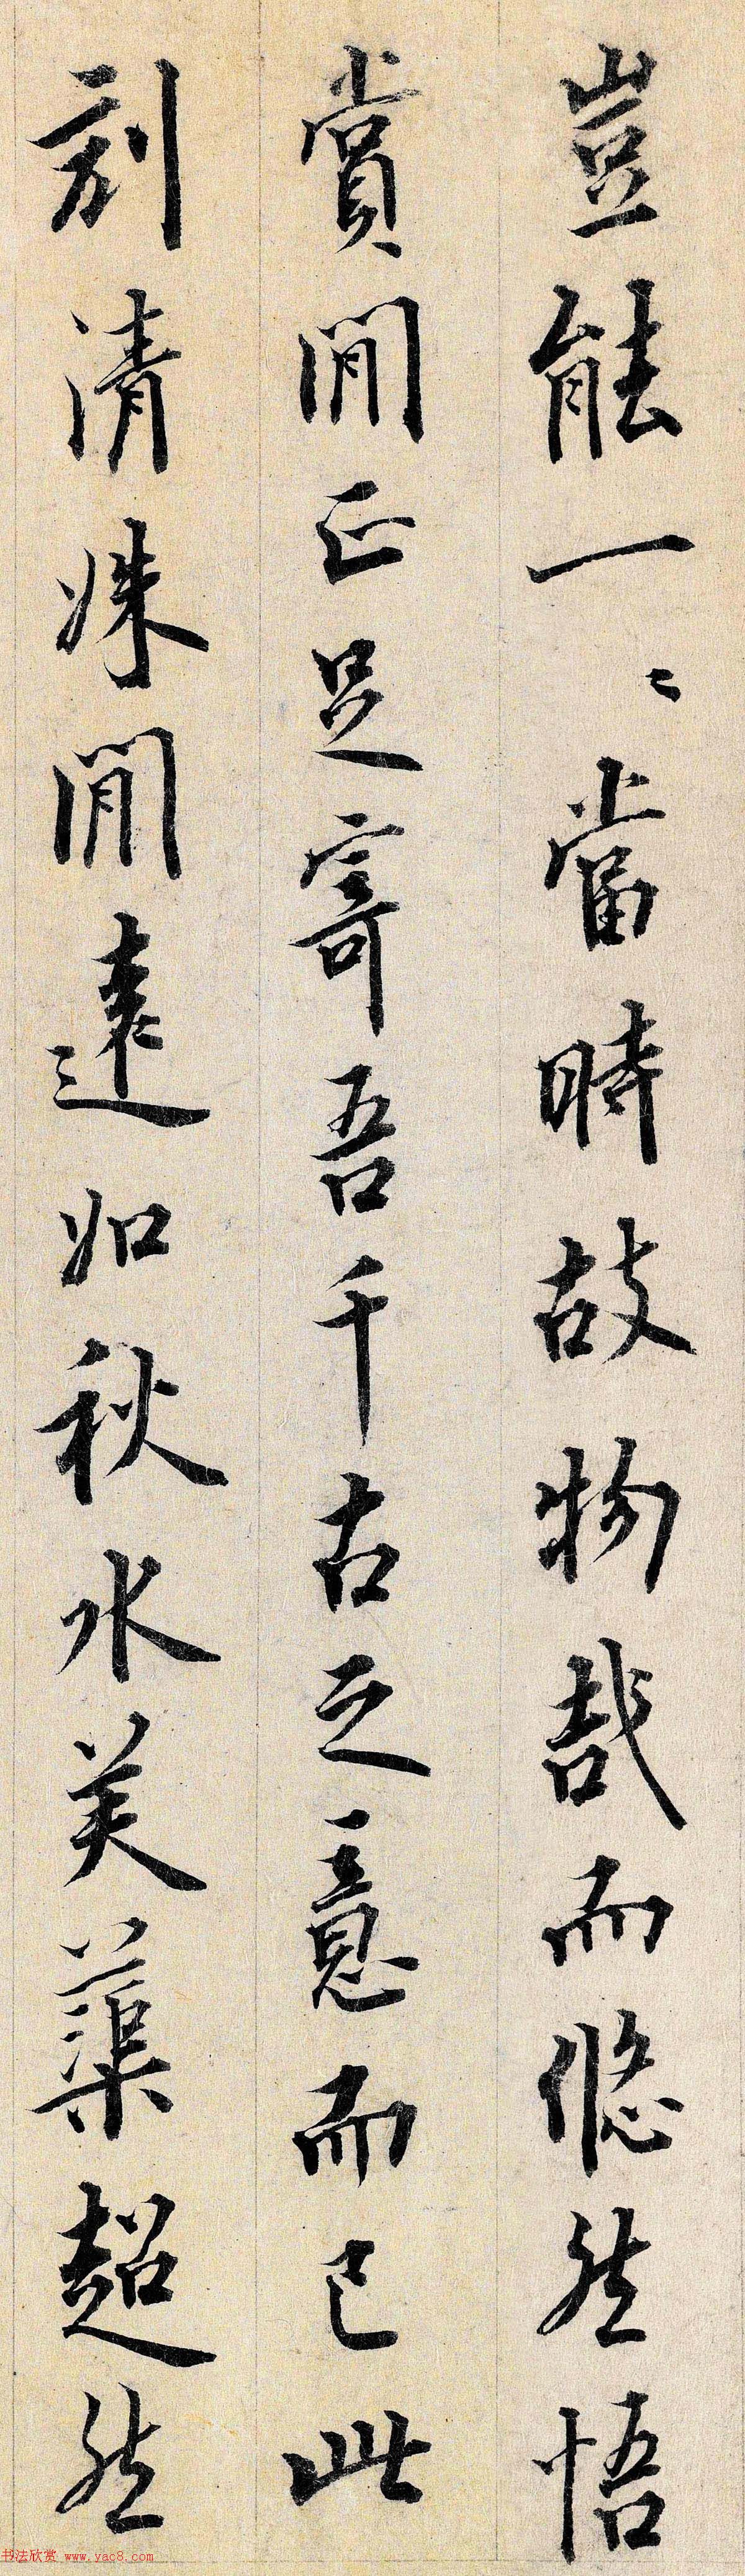 豈能一〻當時故物哉而修然悟
賞閒正足寄吾千古之意而已此
刻清姝閒遠如秋水芙蕖超然
书法欣赏 www.yac8.com